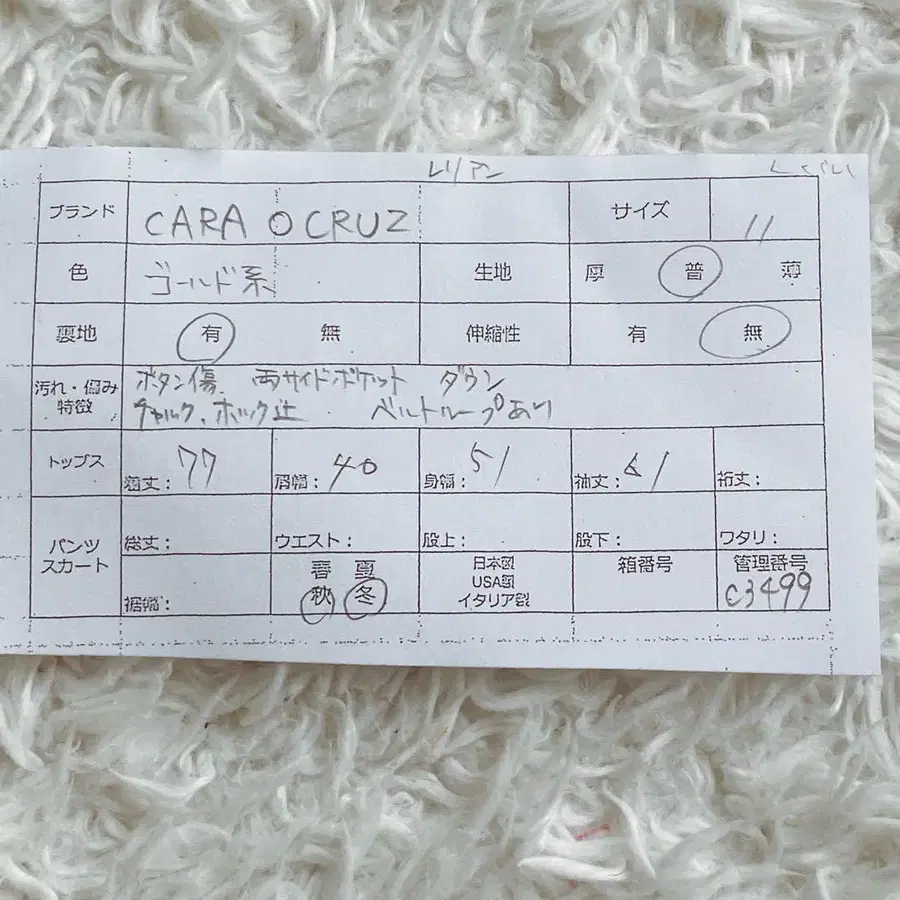 レリアン
ブランド CARA O CRUZ サイズ 11
色 ゴールド系 生地 厚 普 薄
裏地 有 無 伸縮性 有 無
汚れ・傷み ボタン傷 両サイドポケット ダウン
特徴 チャック、ホック止 ベルトループあり
トップス 着丈: 77 肩幅: 40 身幅: 51 袖丈: 61 裄丈:
パンツ
スカート 総丈: ウエスト: 股上: 股下: ワタリ:
裾幅: 春 夏 日本製 箱番号 管理番号
秋 冬 USA製 C3499
イタリア製